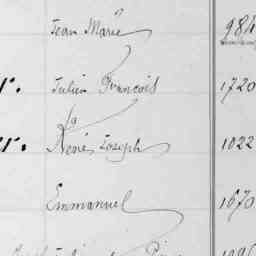 Jean Marie 984
r. Julien François 1720
er. René Joseph 1022
Emmanuel 1670